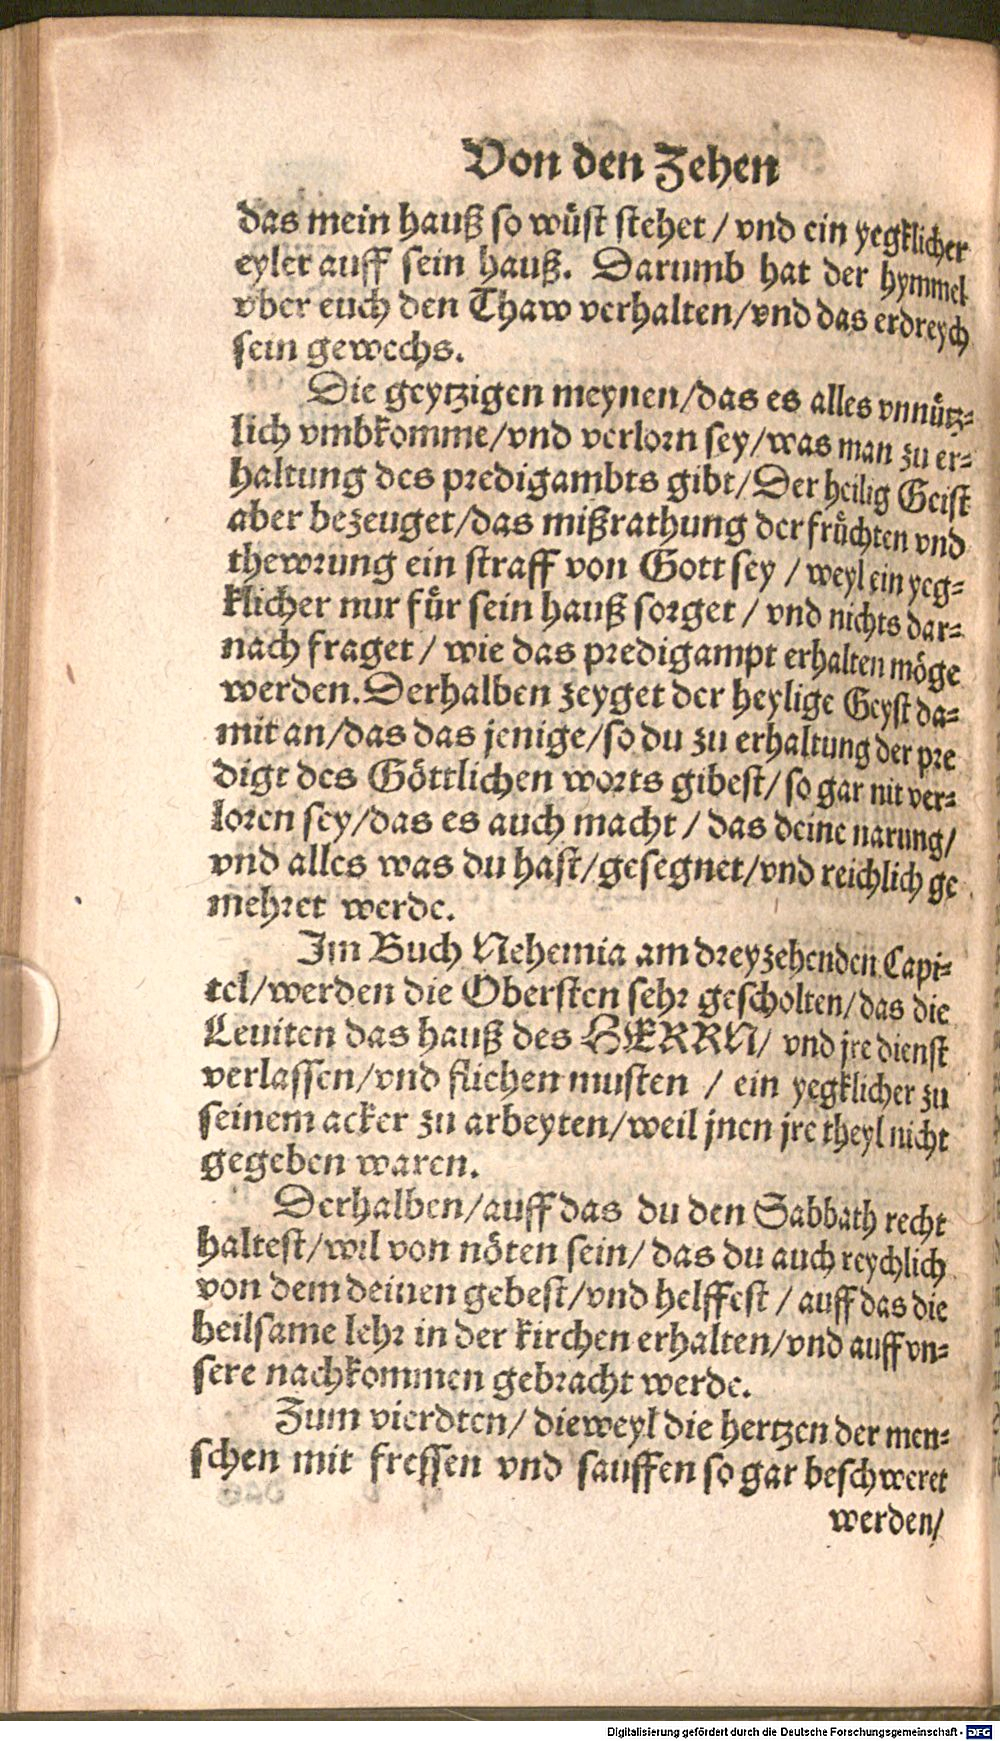 Von den Zehen
das mein hauß so wüst stehet / vnd ein yegklicher
eyler auff sein hauß. Darumb hat der hymmel
vber euch den Thaw verhalten/vnd das erdreych
sein gewechs.
Die geytzigen meynen/das es alles vnnütz-
lich vmbkomme/vnd verlorn sey/was man zu er-
haltung des predigambts gibt/Der heilig Geist
aber bezeuget/das mißrathung der früchten vnd
thewrung ein straff von Gott sey / weyl ein yeg-
klicher nur für sein hauß sorget / vnd nichts dar-
nach fraget / wie das predigampt erhalten möge
werden. Derhalben zeyget der heylige Geyst da-
mit an/das das jenige/so du zu erhaltung der pre
digt des Göttlichen worts gibest/ so gar nit ver-
loren sey/das es auch macht / das deine narung/
vnd alles was du hast/gesegnet/vnd reichlich ge
mehret werde.
Im Buch Nehemia am dreyzehenden Capi-
tel/werden die Obersten sehr gescholten/das die
Leuiten das hauß des HERRN/ vnd jre dienst
verlassen/vnd fliehen musten / ein yegklicher zu
seinem acker zu arbeyten/weil jnen jre theyl nicht
gegeben waren.
Derhalben/auff das du den Sabbath recht
haltest/wil von nöten sein/ das du auch reychlich
von dem deinen gebest/vnd helffest / auff das die
heilsame lehr in der kirchen erhalten/vnd auff vn-
sere nachkommen gebracht werde.
Zum vierdten/ dieweyl die hertzen der men-
schen mit fressen vnd sauffen so gar beschweret
werden/
Digitalisierung gefördert durch die Deutsche Forschungsgemeinschaft - DFG